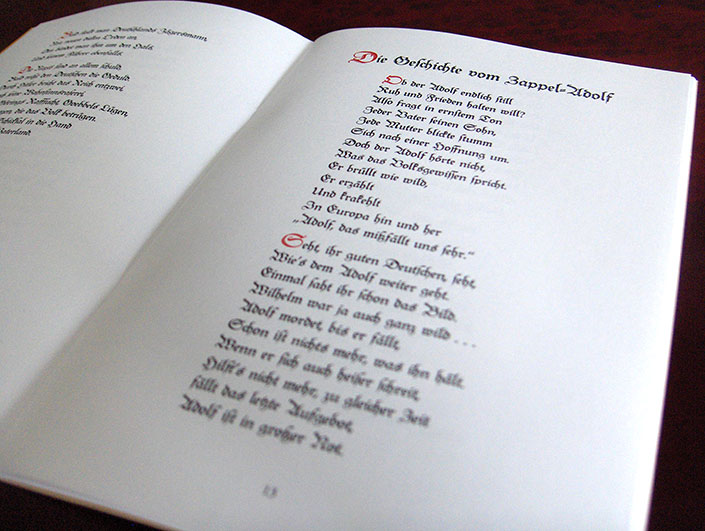 man Deutschlands Jägersmann,
Orden an,
ihm um den Hals,
ebenfalls.
ist an allem schuld.
den Deutschen die Geduld.
das Reich entzwei.
Goebbels Lügen,
die das Volk betrügen.
in die Hand
Vaterland.
Die Geschichte vom Zappel=Adolf
Ob der Adolf endlich still
Ruh und Frieden halten will?
Also fragt in ernstem Ton
Jeder Vater seinen Sohn,
Jede Mutter blickte stumm
Sich nach einer Hoffnung um.
Doch der Adolf hörte nicht,
Was das Volksgewissen spricht.
Er brüllt wie wild,
Er erzählt
Und krakehlt
In Europa hin und her
„Adolf, das mißfällt uns sehr."
Seht, ihr guten Deutschen, seht,
Wie's dem Adolf weiter geht.
Einmal saht ihr schon das Bild.
Wilhelm war ja auch ganz wild . . .
Adolf mordet, bis er fällt,
Schon ist nichts mehr, was ihn hält.
Wenn er sich auch heiser schreit,
Hilft's nicht mehr, zu gleicher Zeit
fällt das letzte Aufgebot,
Adolf ist in großer Not.
13